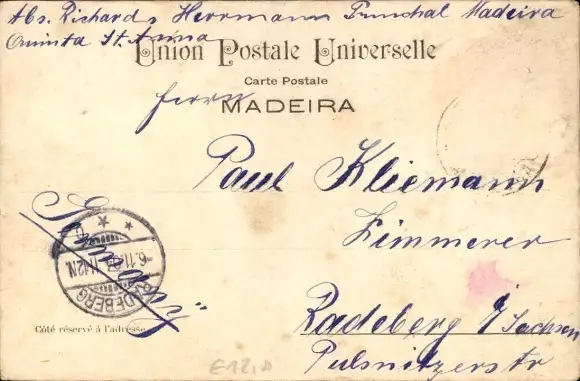 Abs. Richard Herrmann Funchal Madeira
Quinta St. Anna
Union Postale Universelle
Carte Postale
Herrn
MADEIRA
Paul Kliemann
Zimmerer
Radeberg i/Sachsen
Pulsnitzerstr
RADEBERG
Côté réservé à l'adresse